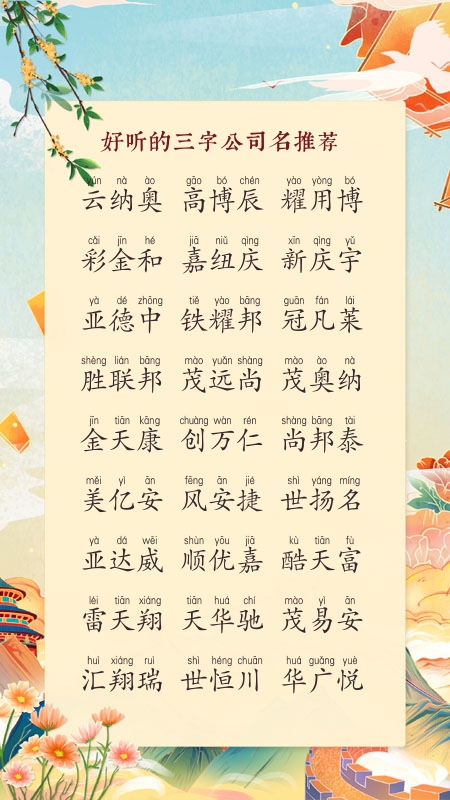 好听的三字公司名推荐
yún nà ào gāo bó chén yào yòng bó
云纳奥 高博辰 耀用博
cǎi jīn hé jiā niǔ qìng xīn qìng yǔ
彩金和 嘉纽庆 新庆宇
yà dé zhōng tiě yào bāng guān fán lái
亚德中 铁耀邦 冠凡莱
shèng lián bāng mào yuǎn shàng mào ào nà
胜联邦 茂远尚 茂奥纳
jīn tiān kāng chuàng wàn rén shàng bāng tài
金天康 创万仁 尚邦泰
měi yì ān fēng ān jié shì yáng míng
美亿安 风安捷 世扬名
yà dá wēi shùn yōu jiā kù tiān fù
亚达威 顺优嘉 酷天富
léi tiān xiáng tiān huá chí mào yì ān
雷天翔 天华驰 茂易安
huì xiáng ruì shì héng chuān huá guǎng yuè
汇翔瑞 世恒川 华广悦